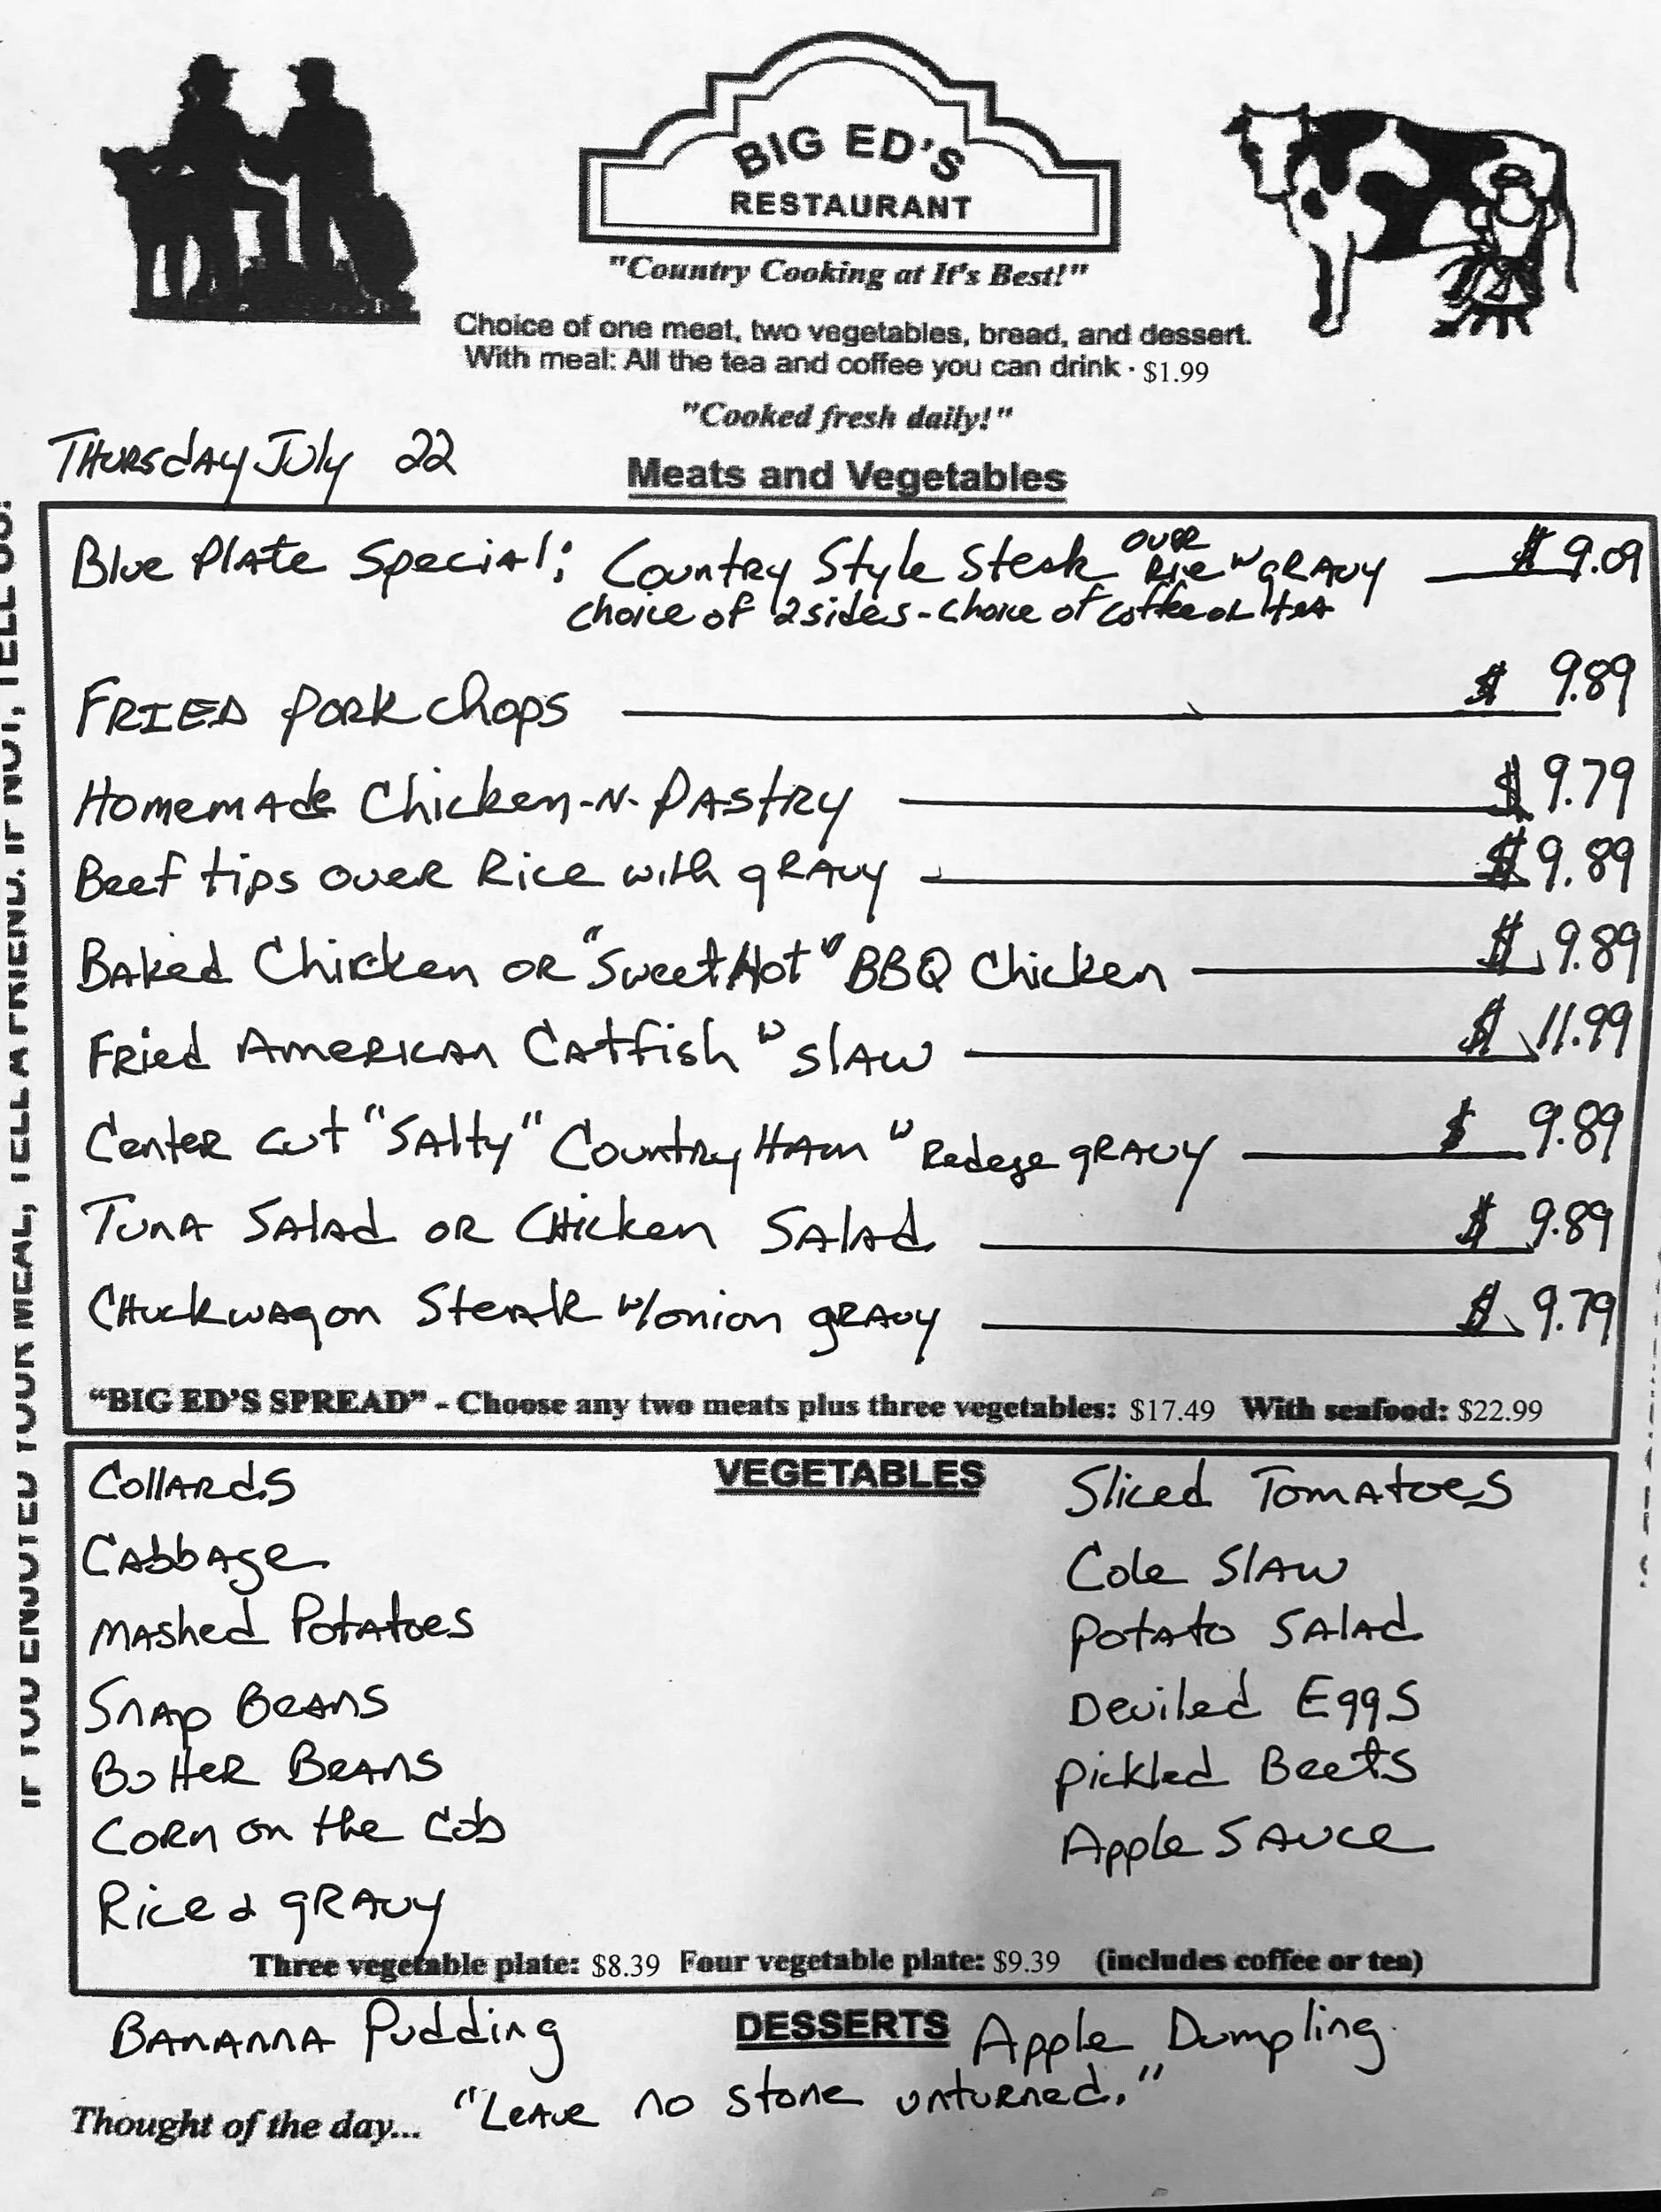 BIG ED'S
RESTAURANT
"Country Cooking at It's Best!"
Choice of one meat, two vegetables, bread, and dessert.
With meal: All the tea and coffee you can drink · $1.99
"Cooked fresh daily!"
THURSdAy July 22
Meats and Vegetables
Blue Plate Special: Country Style Steak over Rice w gRAvy $ 9.09
choice of 2 sides - choice of coffee or tea
FRIED PORK chops $ 9.89
Homemade Chicken-N-PAstRy $ 9.79
Beef tips over Rice with gRAvy $ 9.89
Baked Chicken OR "Sweet Hot" BBQ Chicken $ 9.89
Fried American Catfish w slaw $ 11.99
Center cut "Salty" Country Ham w Redeye gRAvy $ 9.89
Tuna Salad OR Chicken Salad $ 9.89
Chuckwagon Steak w/onion gRAvy $ 9.79
"BIG ED'S SPREAD" - Choose any two meats plus three vegetables: $17.49 With seafood: $22.99
VEGETABLES
Collards
Cabbage
Mashed Potatoes
Snap Beans
Butter Beans
Corn on the Cob
Rice & gRAvy
Sliced Tomatoes
Cole Slaw
Potato Salad
Deviled Eggs
Pickled Beets
Apple Sauce
Three vegetable plate: $8.39 Four vegetable plate: $9.39 (includes coffee or tea)
DESSERTS
Bananna Pudding
Apple Dumpling
Thought of the day... "Leave no stone unturned."
IF YOU ENJOYED YOUR MEAL, TELL A FRIEND. IF NOT, TELL US!